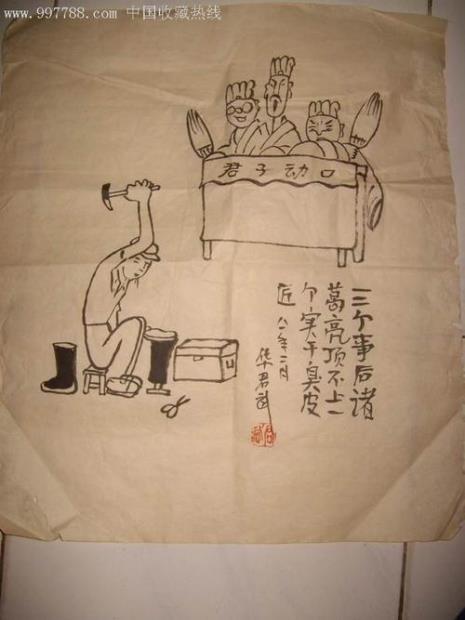 www.997788.com 中国收藏热线
君子动口
三个事后诸
葛亮顶不上一
个实干臭皮
匠 八一年二月
华君武